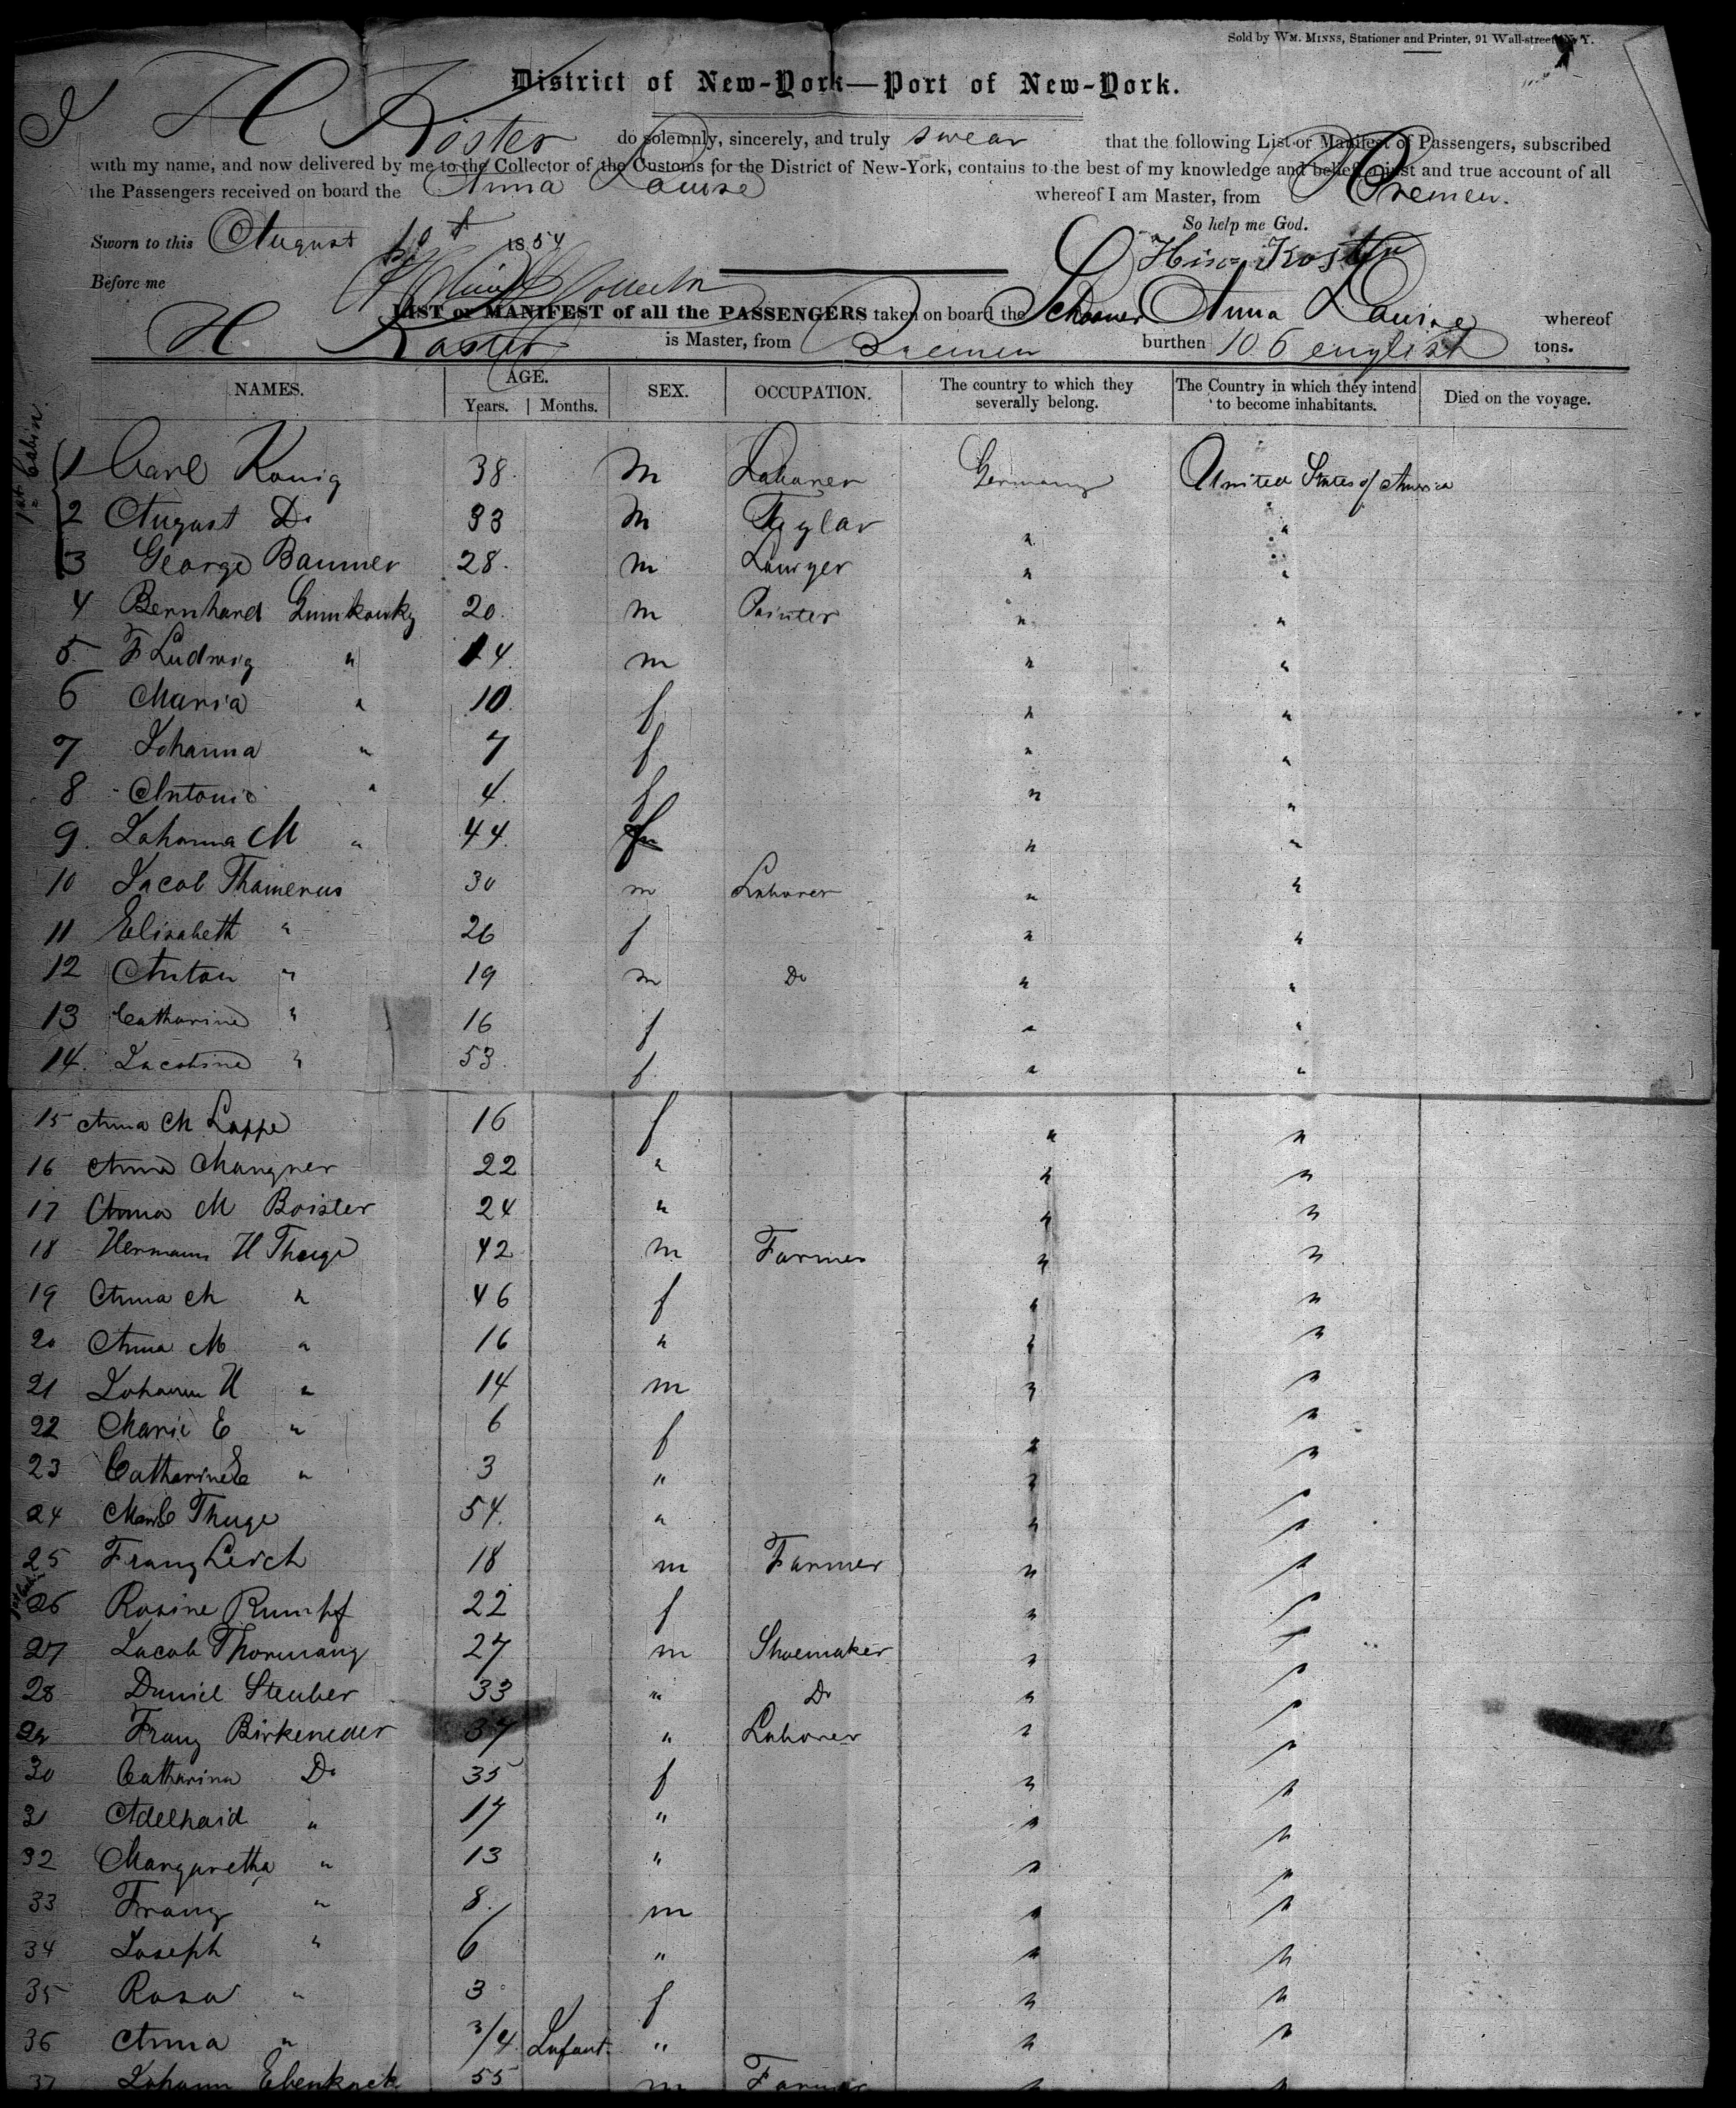 Sold by WM. MINNS, Stationer and Printer, 91 Wall-street, N. Y.
District of New-York—Port of New-York.
I H Köster do solemnly, sincerely, and truly swear that the following List or Manifest of Passengers, subscribed
with my name, and now delivered by me to the Collector of the Customs for the District of New-York, contains to the best of my knowledge and belief, a just and true account of all
the Passengers received on board the Anna Louise whereof I am Master, from Bremen.
So help me God.
Sworn to this August 10t 1854
Koster
Before me
LIST or MANIFEST of all the PASSENGERS taken on board the Schooner Anna Louise whereof
H. Koster is Master, from Bremen burthen 106 english tons.
NAMES. AGE. SEX. OCCUPATION. The country to which they severally belong. The Country in which they intend to become inhabitants. Died on the voyage.
Years. Months.
Cabin
1 Carl Konig 38 m Laborer Germany United States of America
2 August Do 33 m Taylor " "
3 George Banmer 28 m Lawyer " "
4 Bernhard 20 m Painter " "
5 F Ludwig " 14 m " "
6 Maria " 10 f " "
7 Johanna " 7 f " "
8 Antonie " 4 f " "
9 Johanna M " 44 f " "
10 Jacob Thamerus 30 m Laborer " "
11 Elisabeth " 26 f " "
12 Anton " 19 m Do " "
13 Catharine " 16 f " "
14 Jacobine " 53 f " "
15 Anna M Lappe 16 f " "
16 Anna Mangner 22 " " "
17 Anna M Boister 24 " " "
18 Hermann H Thuge 42 m Farmer " "
19 Anna M " 46 f " "
20 Anna M " 16 " " "
21 Johann H " 14 m " "
22 Marie E " 6 f " "
23 Catharine E " 3 " " "
24 Thuge 54 " " "
25 Franz Lerch 18 m Farmer " "
26 Rosine Rumpf 22 f " "
27 Jacob Thormang 27 m Shoemaker " "
28 Daniel Steuber 33 " Do " "
29 Franz Birkeneder 37 " Laborer " "
30 Catharina Do 35 f " "
31 Adelhaid " 17 " " "
32 Margaretha " 13 " " "
33 Franz " 8 m " "
34 Joseph " 6 " " "
35 Rosa " 3 f " "
36 Anna " 3/4 Infant " " "
37 Johann Ebenkack 55 m Farmer " "